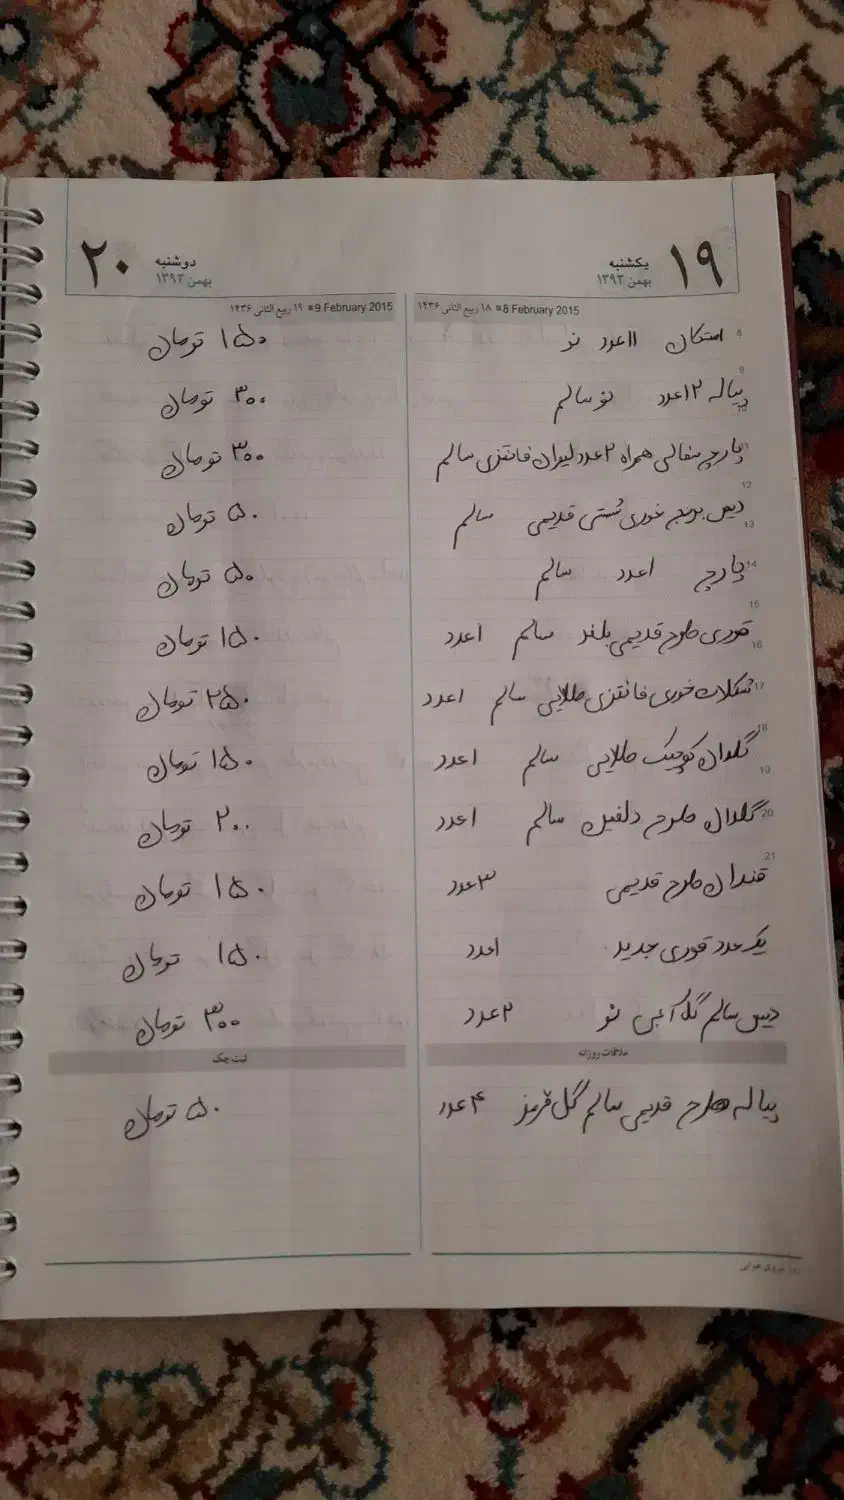 ۱۹ یکشنبه
بهمن ۱۳۹۳
8 February 2015 ■ ۱۸ ربیع الثانی ۱۴۳۶
۲۰ دوشنبه
بهمن ۱۳۹۳
9 February 2015 ■ ۱۹ ربیع الثانی ۱۴۳۶
8 استکان ۱۱عدد نو ۱۵۰ تومان
9
10 پیاله ۱۲عدد نو سالم ۳۰۰ تومان
11 پارچ سفالی همراه ۲عدد لیوان فانتزی سالم ۳۰۰ تومان
12
13 دیس برنج خوری شستی قدیمی سالم ۵۰ تومان
14 پارچ ۱عدد سالم ۵۰ تومان
15
16 قوری طرح قدیمی بلند سالم ۱عدد ۱۵۰ تومان
17 شکلات خوری فانتزی طلایی سالم ۱عدد ۲۵۰ تومان
18
19 گلدان کوچیک طلایی سالم ۱عدد ۱۵۰ تومان
20 گلدان طرح دلفین سالم ۱عدد ۲۰۰ تومان
21 قندان طرح قدیمی ۳عدد ۱۵۰ تومان
یک عدد قوری جدید ۱عدد ۱۵۰ تومان
دیس سالم گل آبی نو ۲عدد ۳۰۰ تومان
ملاقات روزانه
ثبت چک
پیاله طرح قدیمی سالم گل قرمز ۴عدد ۵۰ تومان
روز نیروی هوایی